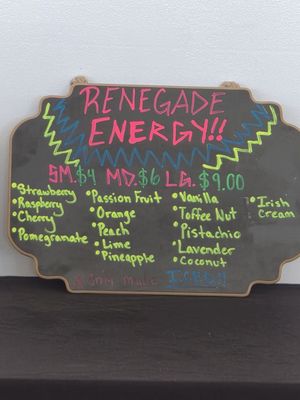 RENEGADE
ENERGY!!
SM.$4 MD.$6 LG.$9.00
•Strawberry
•Raspberry
•Cherry
•Pomegranate
•Passion Fruit
•Orange
•Peach
•Lime
•Pineapple
•Vanilla
•Toffee Nut
•Pistachio
•Lavender
•Coconut
•Irish
Cream